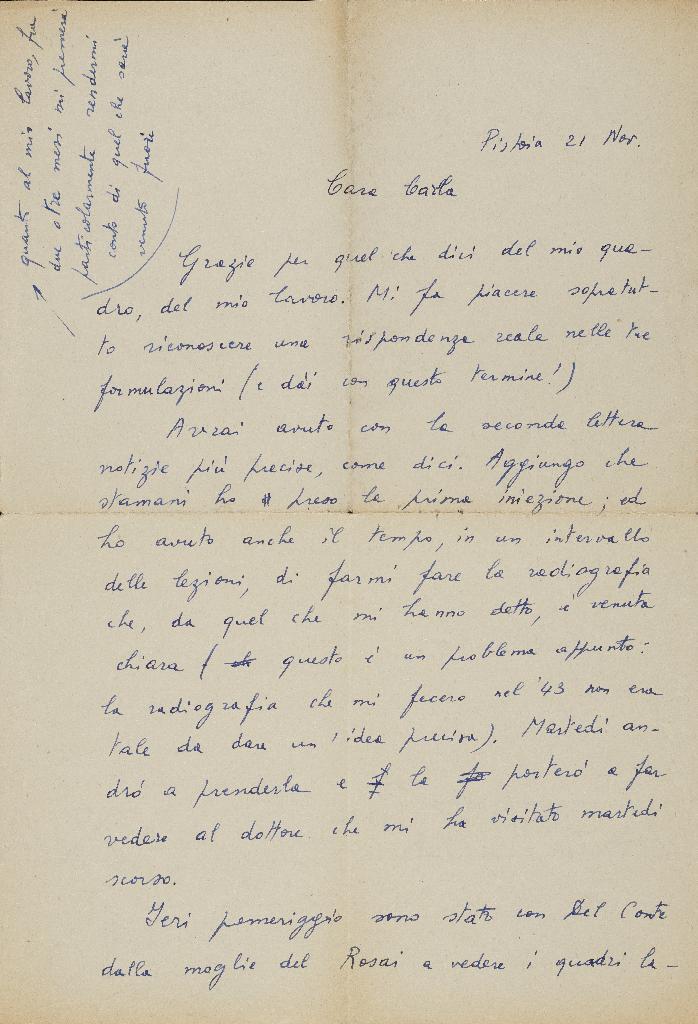 Pistoia 21 Nov.
Cara Carla
Grazie per quel che dici del mio qua-
dro, del mio lavoro. Mi fa piacere sopratut-
to riconoscere una rispondenza reale nelle tue
formulazioni (e dài con questo termine!)
Avrai avuto con la seconda lettera
notizie più precise, come dici. Aggiungo che
stamani ho preso la prima iniezione; ed
ho avuto anche il tempo, in un intervallo
delle lezioni, di farmi fare la radiografia
che, da quel che mi hanno detto, è venuta
chiara ( questo è un problema appunto:
la radiografia che mi fecero nel '43 non era
tale da dare un'idea precisa). Martedì an-
drò a prenderla e la porterò a far
vedere al dottore che mi ha visitato martedì
scorso.
Ieri pomeriggio sono stato con Del Conte
dalla moglie del Rosai a vedere i quadri la-
quanto al mio lavoro, fra
due o tre mesi mi premerà
particolarmente rendermi
conto di quel che sarà
venuto fuori